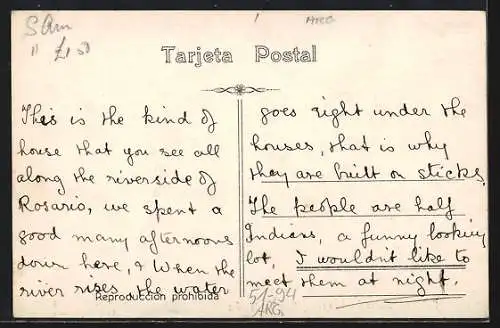 S Am
" £1.50
ARG
Tarjeta Postal
This is the kind of
house that you see all
along the riverside of
Rosario, we spent a
good many afternoons
down here, & When the
river rises the water
Reproducción prohibida
goes right under the
houses, that is why
they are built on sticks.
The people are half
Indians, a funny looking
lot, I wouldn't like to
meet them at night.
51-94
ARG.